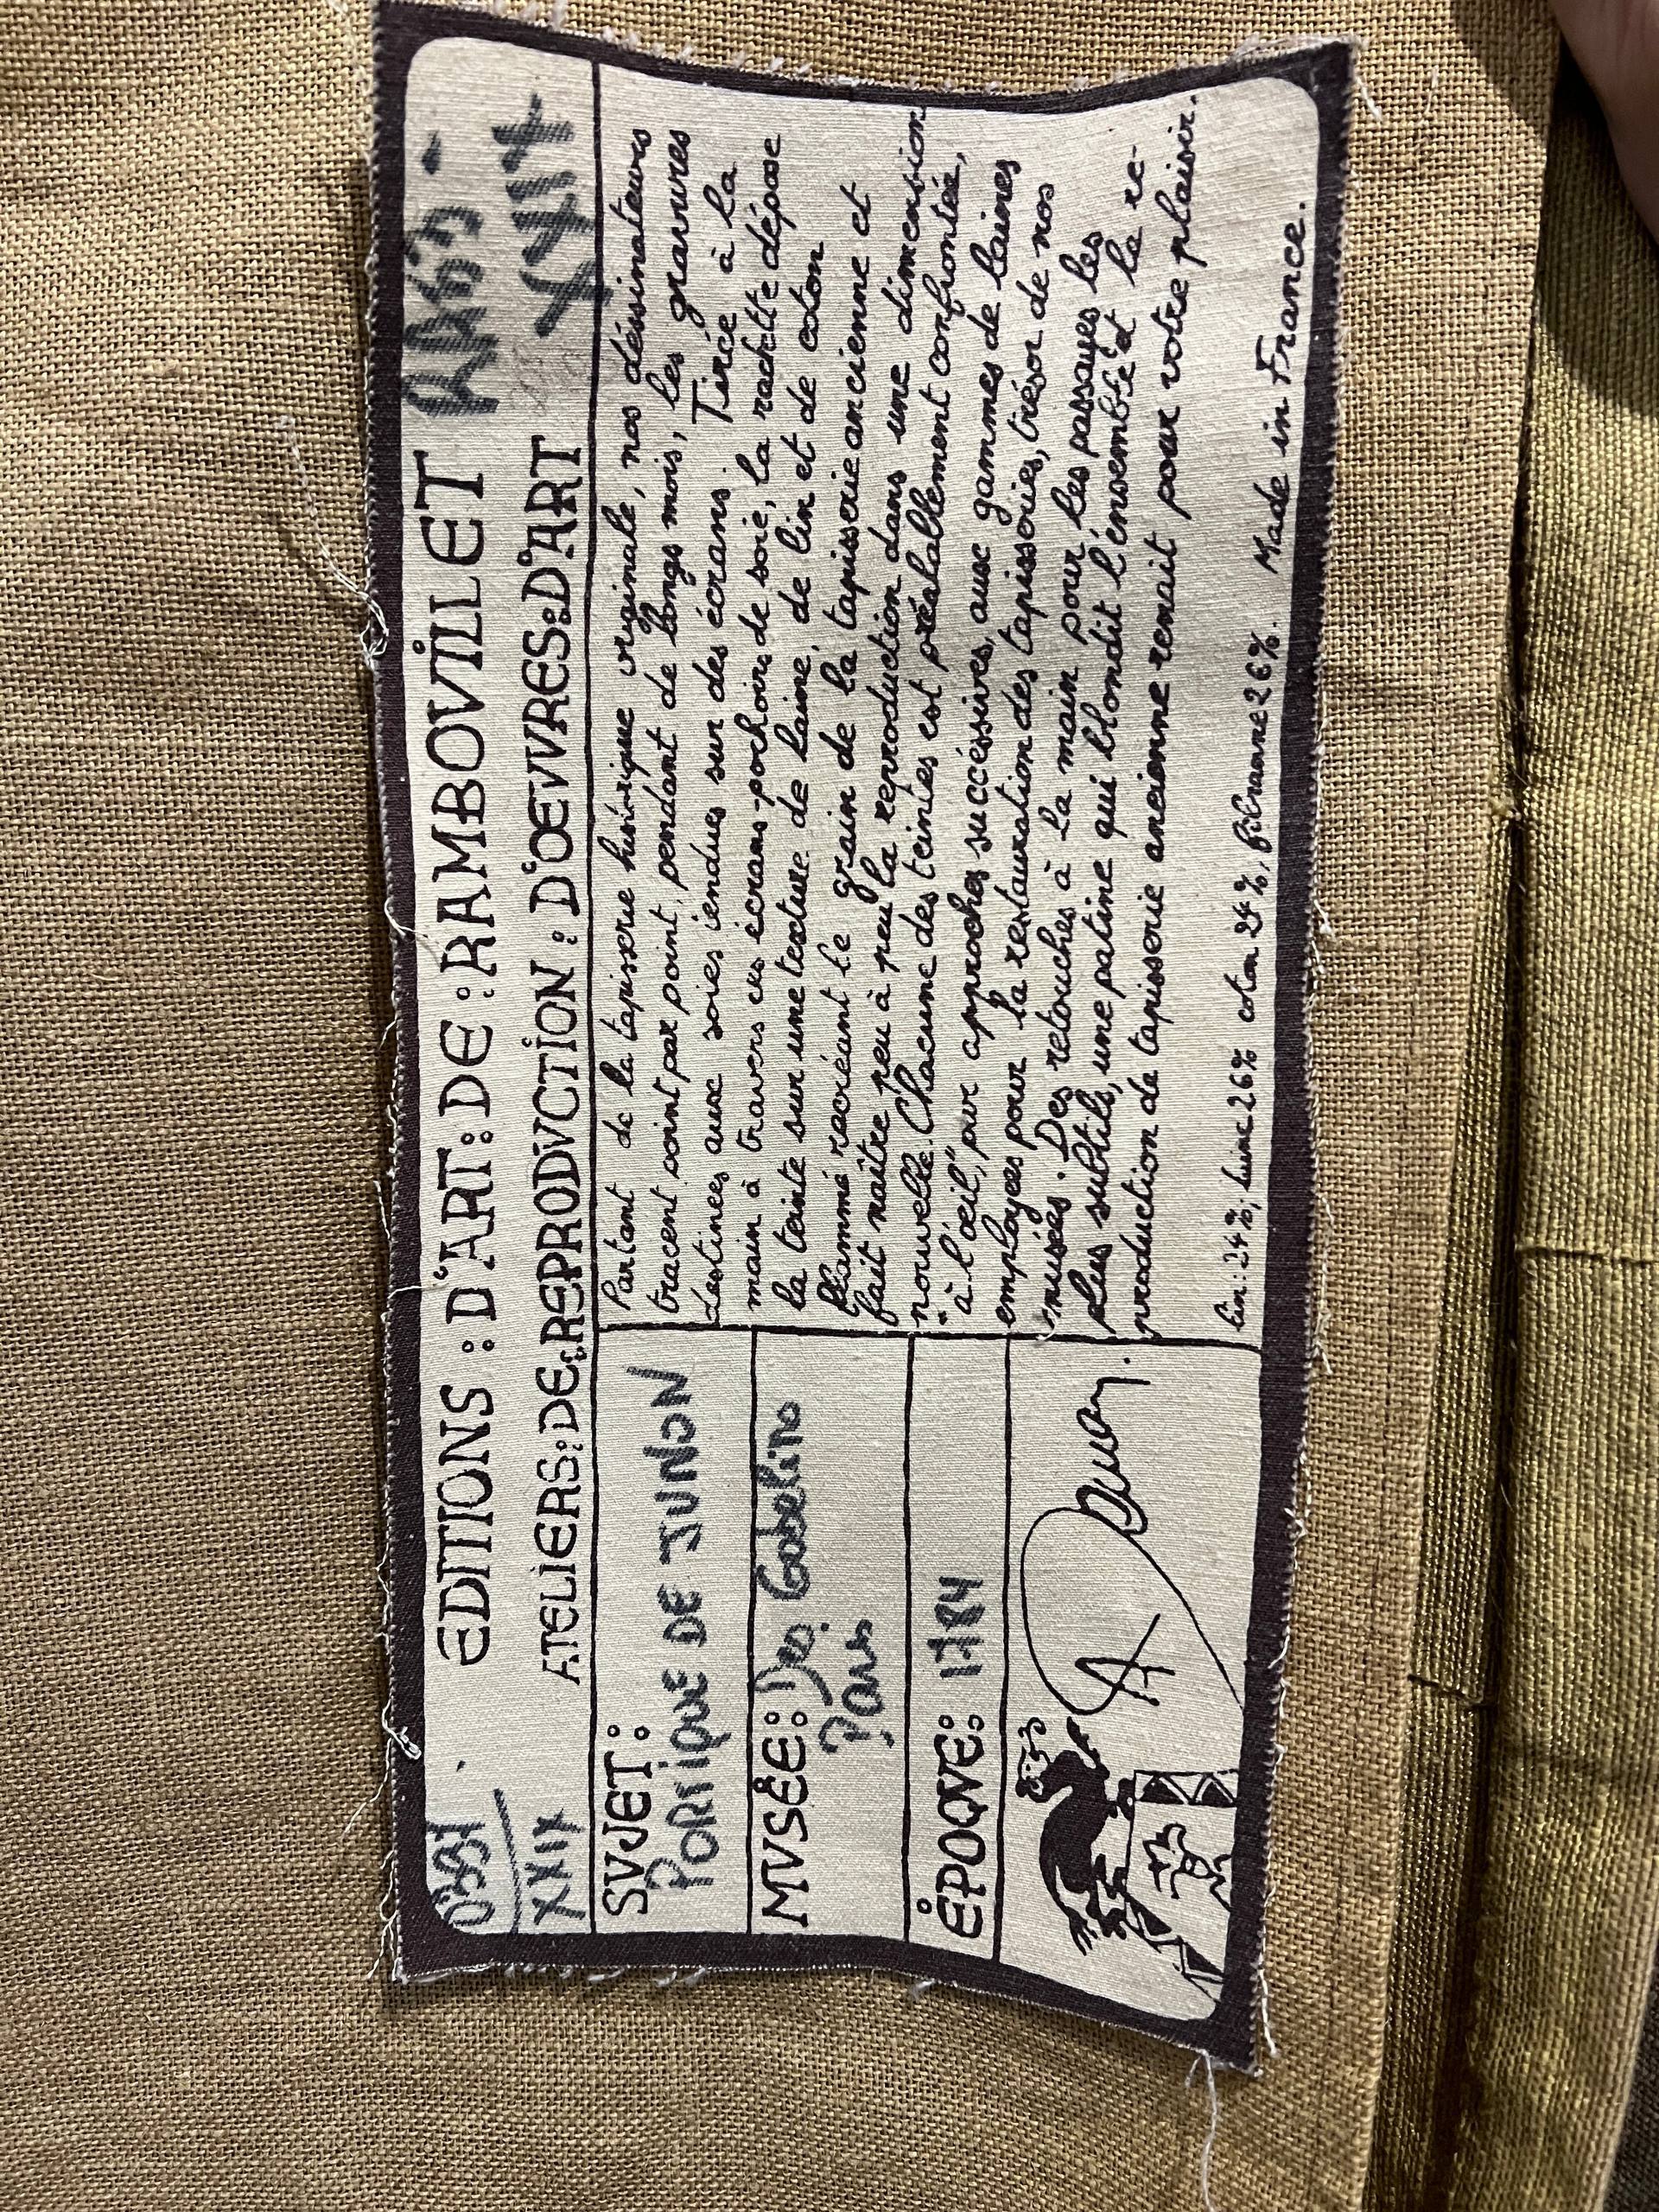 EDITIONS : D'ART : DE : RAMBOVILLET
ATELIERS : DE : REPRODVCTION : D'OEVVRES : D'ART
XXIX
SVJET :
PORTIQUE DE JUNON
MVSÉE : Des Gobelins
Paris
ÉPOQVE : 1784
Partant de la tapisserie historique originale, nos déssinateurs
tracent point par point, pendant de longs mois, les gravures
destinées aux soies tendues sur des écrans. Tirée à la
main à travers ces écrans-pochoirs de soie, la raclette dépose
la teinte sur une texture de laine, de lin et de coton
flammé recréant le grain de la tapisserie ancienne et
fait naître peu à peu la reproduction dans une dimension
nouvelle. Chacune des teintes est préalablement confrontée,
"à l'œil", par approches succéssives, aux gammes de laines
employées pour la restauration des tapisseries, trésor de nos
musées. Des retouches à la main pour les passages les
plus subtils, une patine qui blondit l'ensemble et la re-
production de tapisserie ancienne renait pour votre plaisir.
lin: 24%, laine 26% coton 24%, fibranne 26%. Made in France.